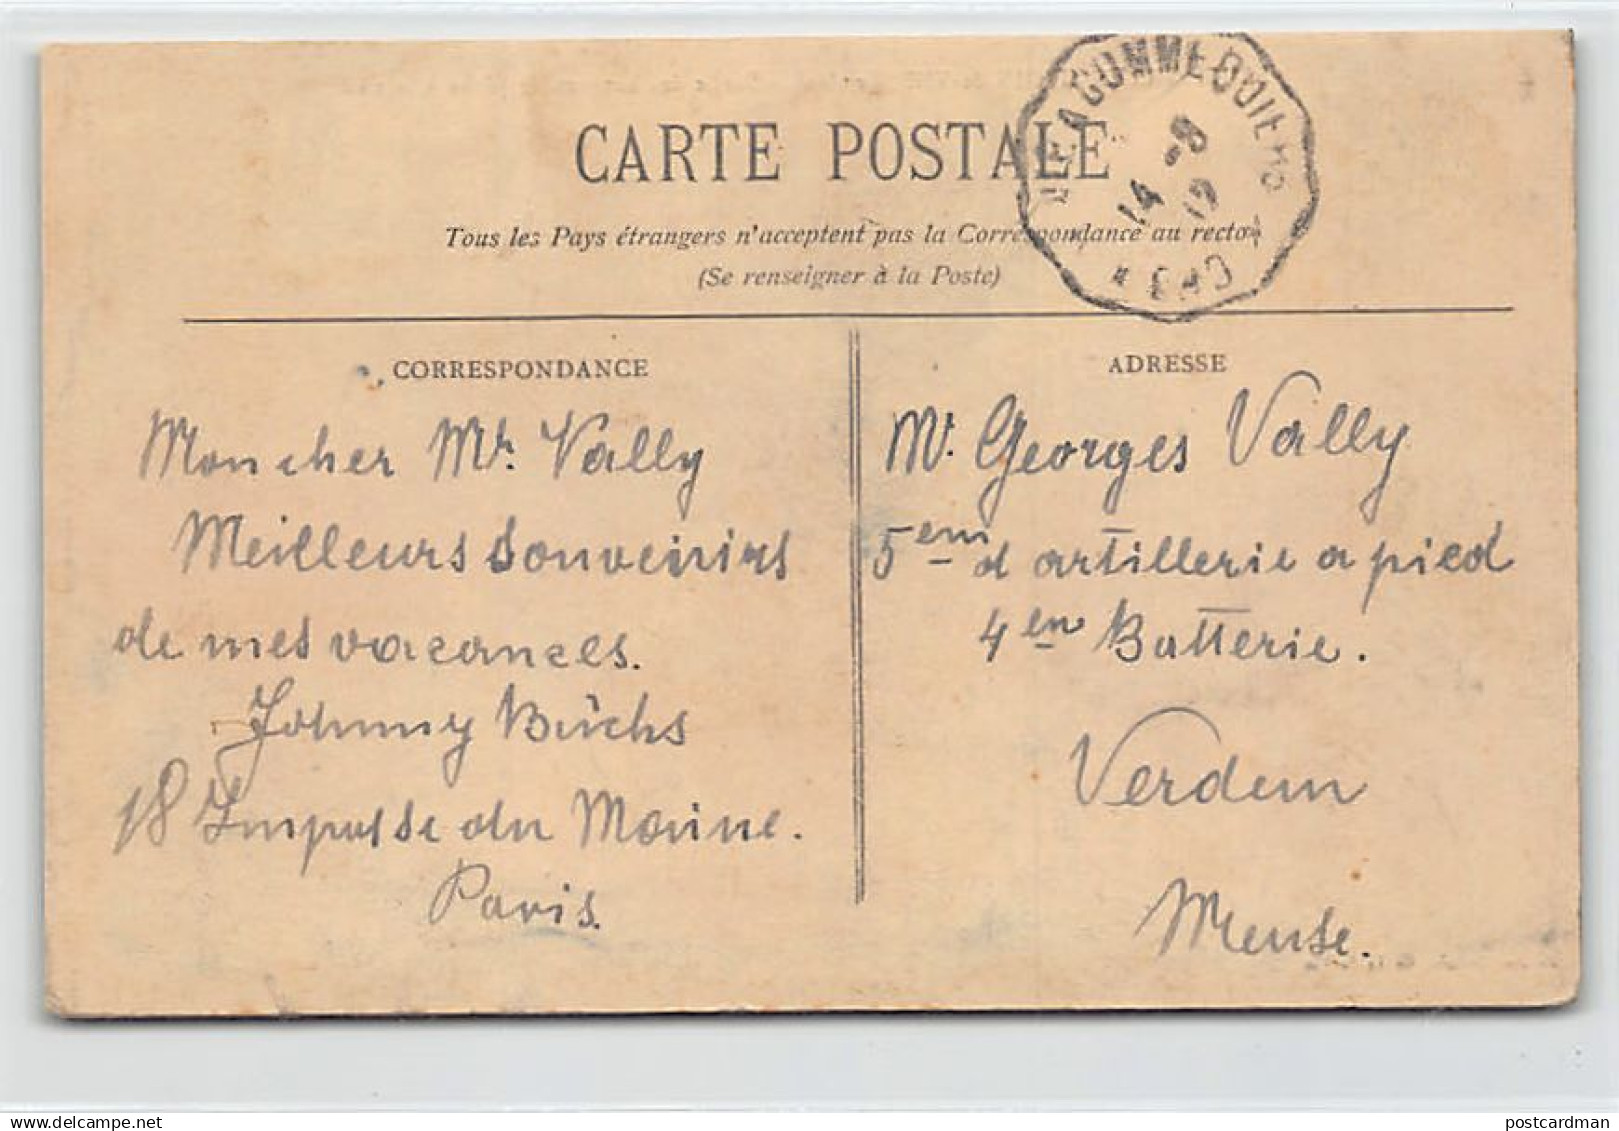 CARTE POSTALE
Tous les Pays étrangers n'acceptent pas la Correspondance au recto
(Se renseigner à la Poste)
A COMMEQUIERS
14 -8
12
CORRESPONDANCE
Mon cher Mr. Vally
Meilleurs souvenirs
de mes vacances.
Johnny Büchs
18 Impasse du Maine.
Paris.
ADRESSE
Mr. Georges Vally
5em d artillerie a pied
4en Batterie.
Verdun
Meuse.
delcampe.net
postcardman